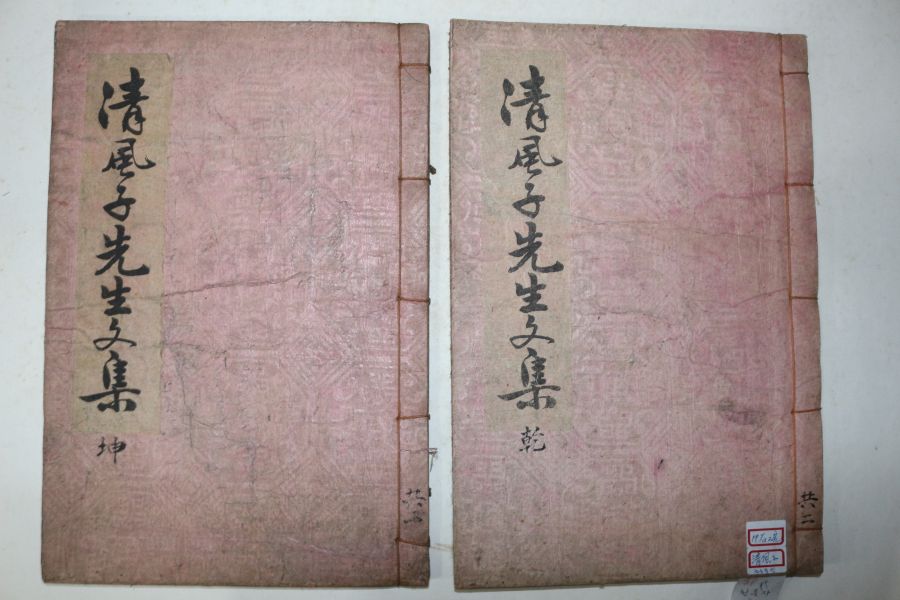 清風子先生文集
乾
共二
清風子
清風子先生文集
坤
共二